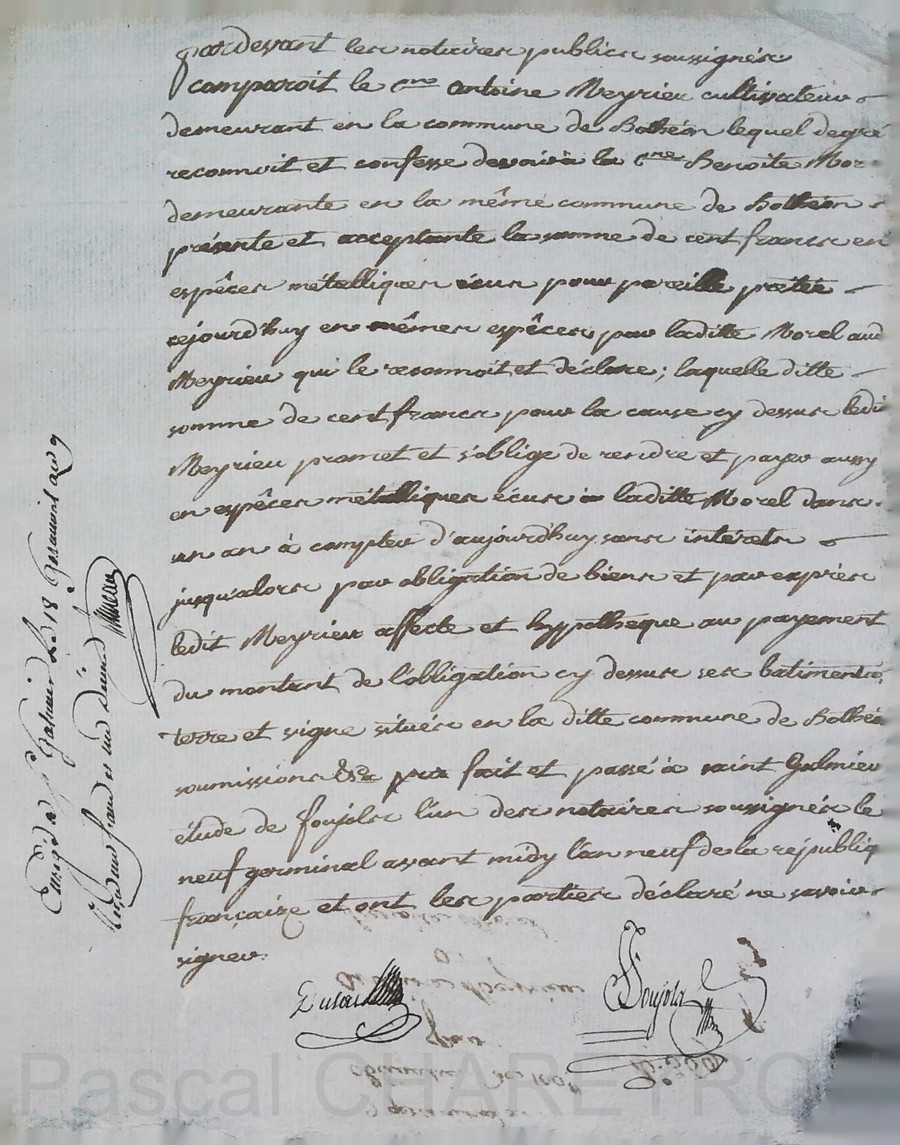 pardevant les notaires publics soussignés
comparoit le c.ne antoine Meyrieu cultivateur
demeurant en la commune de Bothéon lequel degré
reconnoit et confesse devoir à la c.ne Benoite Mor
demeurante en la même commune de Bothéon
présente et acceptante la somme de cent francs en
espêces métalliques écus pour pareille prêtée
cejourd'huy en mêmes espêces par laditte Morel aud
Meyrieu qui le reconnoit et déclare ; laquelle ditte
somme de cent francs pour la cause cy dessus ledit
Meyrieu promet et s'oblige de rendre et payer aussy
en espêces métalliques écus à laditte Morel dans
un an à compter d'aujourd'huy sans intérets
jusqu'alors par obligation de biens et par exprès
ledit Meyrieu affecte et hyppothèque au payement
du montant de l'obligation cy dessus ses batiments,
terre et vigne située en la ditte commune de Bothéo
soumissions &ca fait et passé à saint Galmier
étude de foujols l'un des notaires soussignés le
neuf germinal avant midy l'an neuf de la républiq
française et ont les parties déclaré ne savoir
signer.
Foujols
le 18 Germinal an 9
Pascal CHARETRO